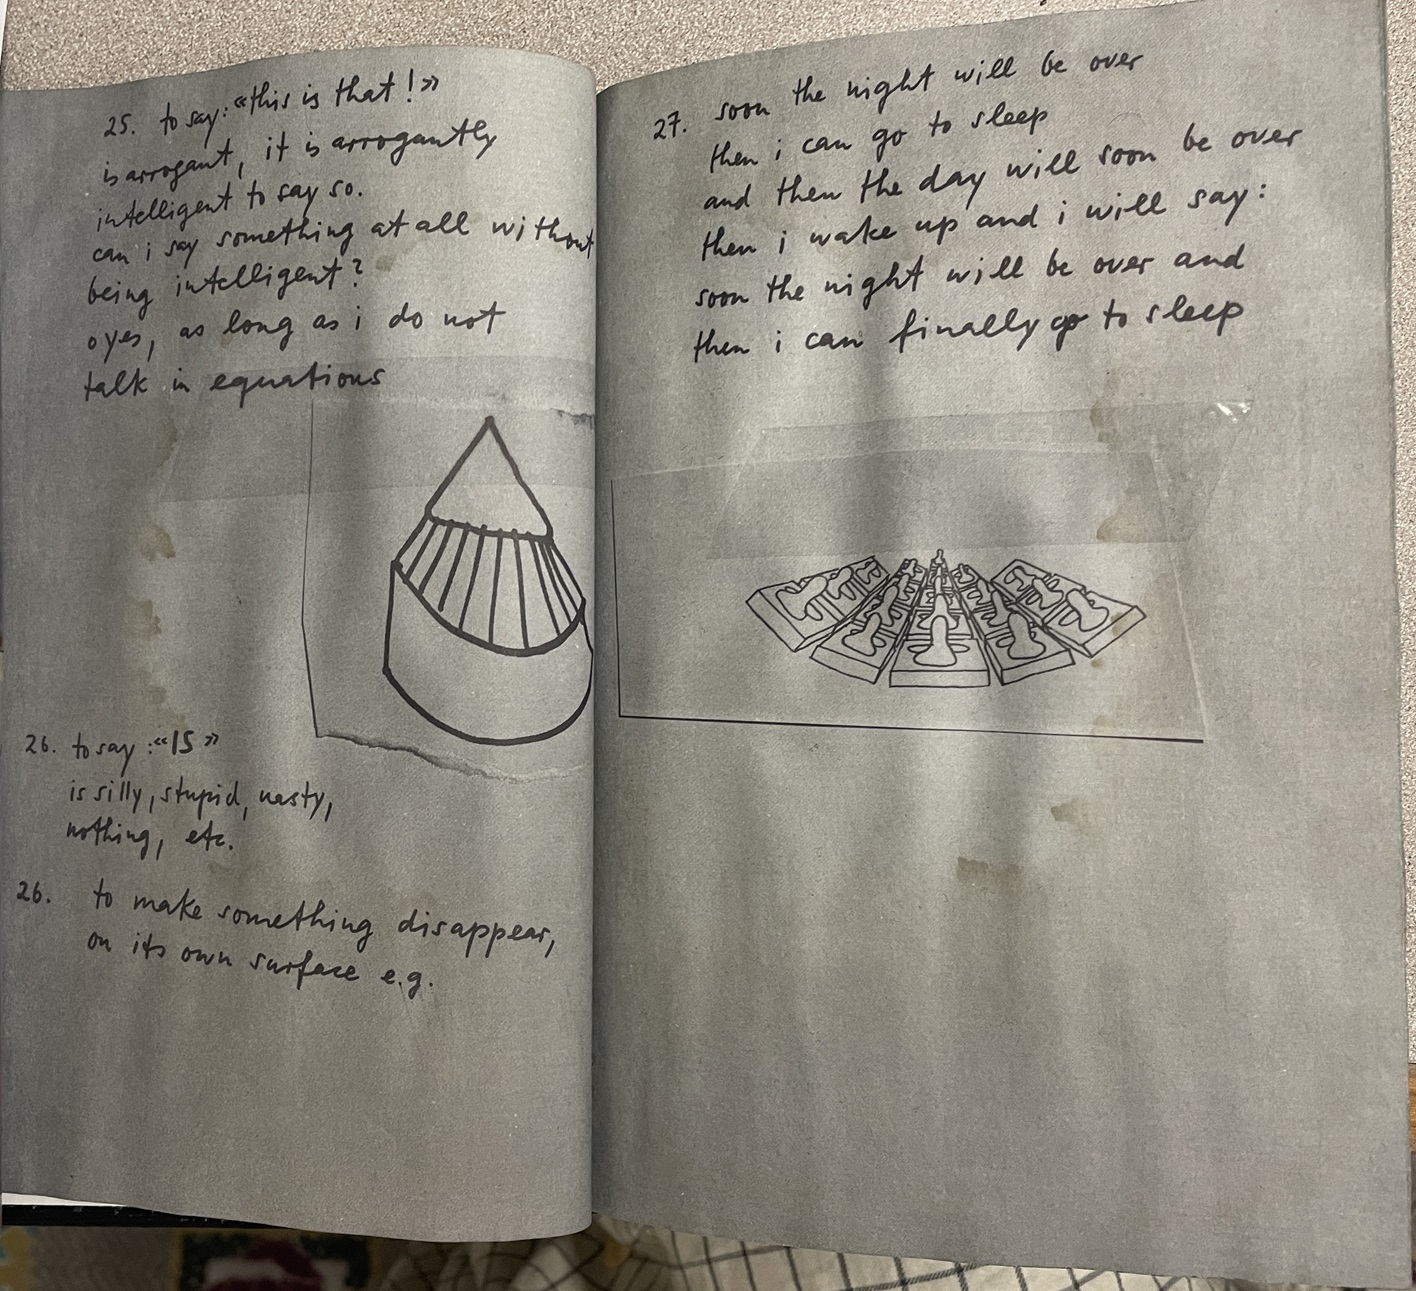 25. to say: «this is that!»
is arrogant, it is arrogantly
intelligent to say so.
can i say something at all without
being intelligent?
o yes, as long as i do not
talk in equations
26. to say: «IS»
is silly, stupid, nasty,
nothing, etc.
26. to make something disappear,
on its own surface e.g.
27. soon the night will be over
then i can go to sleep
and then the day will soon be over
then i wake up and i will say:
soon the night will be over and
then i can finally go to sleep